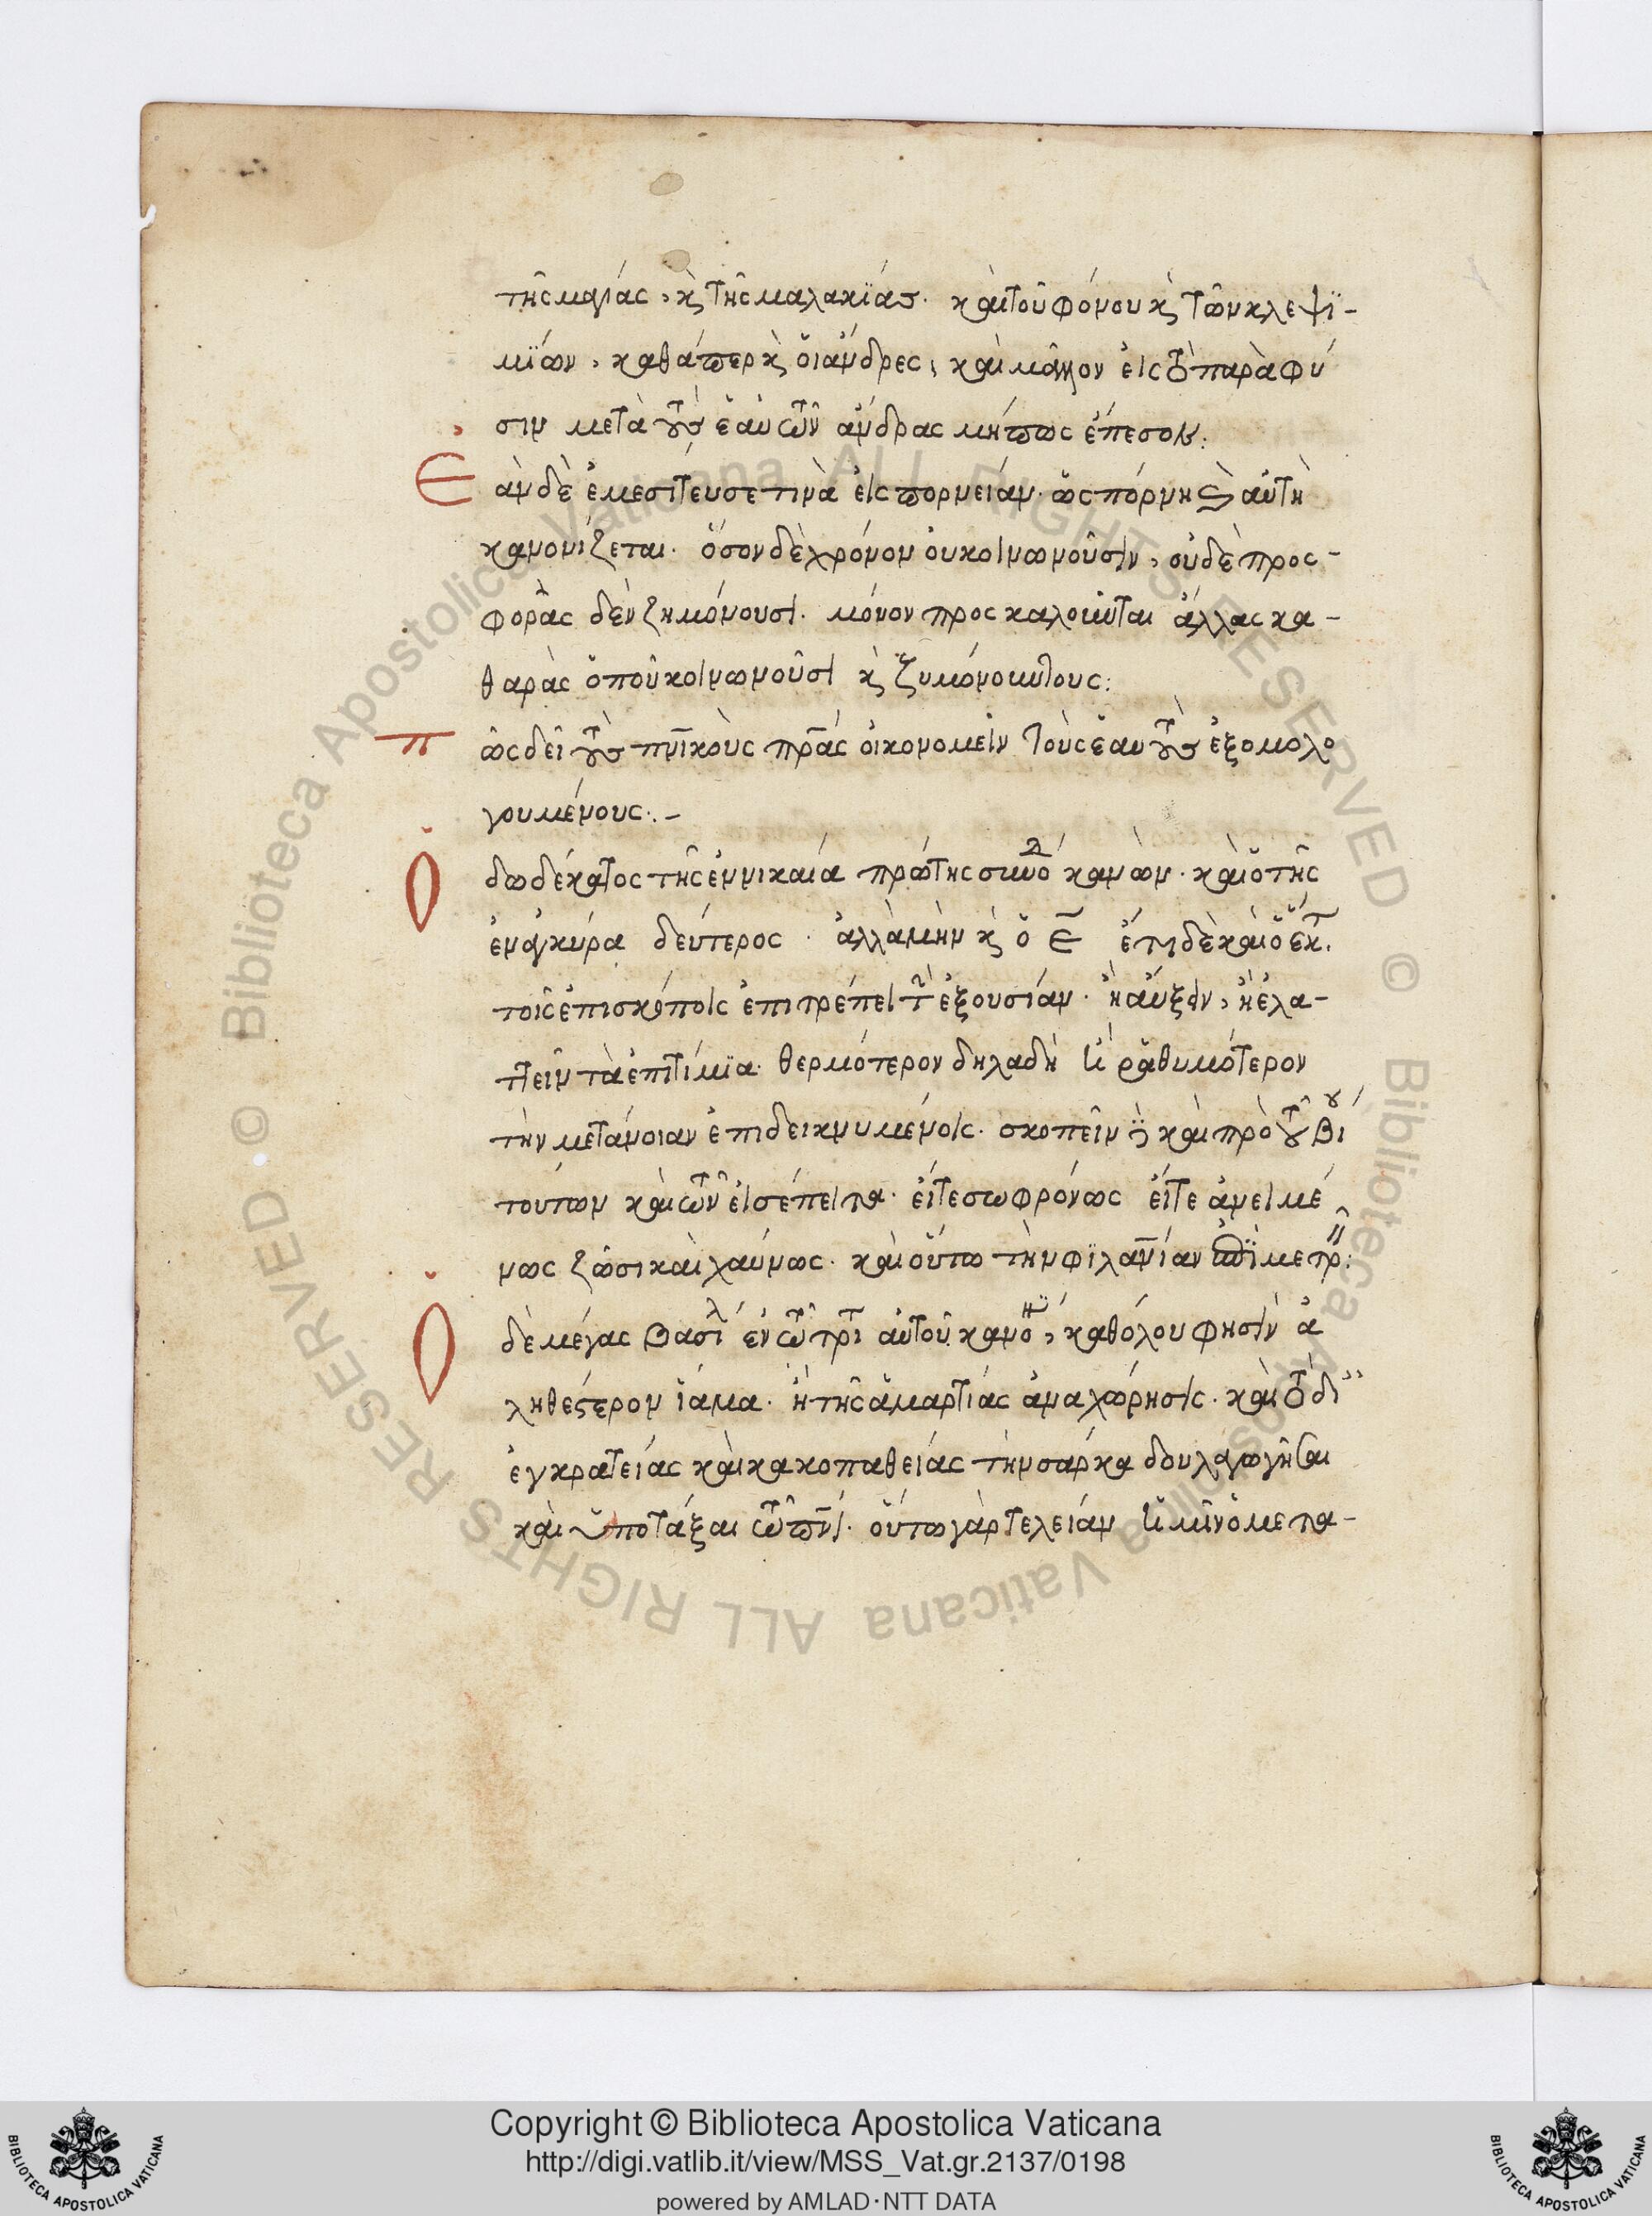 τῆς μαγίας, κ̀ τῆς μαλακΐας. καὶ τοῦ φόνου κ̀ τῶν κλεψϊ-
μϊών, καθάπερ κ̀ ὅι άνδρες, καὶ μᾶλλον ἐις τὸ παρὰ φύ
σιν μετὰ τοὺς ἑαυτῶν ἄνδρας μήπως ἔπεσον:
Ε ὰν δὲ ἐμεσίτευσε τινὰ ἐις πορνείαν. ὥς πόρνη κ̀ αὐτὴ
κανονίζεται. ὅσον δὲ χρόνον ὀυ κοινωνοῦσιν, οὐδὲ προς-
φορὰς δὲν ζημόνουσι. μόνον προς καλοιῶται ἄλλας κα-
θαρὰς ὁποῦ κοινωνοῦσι κ̀ ζυμόνοιω τους:
π ῶς δεῖ τοὺς πνϊκοὺς πρᾱς οἰκονομεῖν τοὺς ἑαυτοὺς ἐξομολο
γουμένους:-
Ὁ δωδέκατος τῆς ἐν νικαία πρώτης συνόδ κανὼν. καὶ ὁ τῆς
ἐν ἀγκύρα δεύτερος. ἀλλὰ μὴν κ̀ ὁ ε̄ ἔτι δὲ καὶ ὁ ἕκτ.
τοῖς ἐπισκόποις ἐπιτρέπει τὴν ἐξουσίαν. ἢ αὔξειν, ἢ ἐλα-
ττεῖν τὰ ἐπιτίμϊα. θερμότερον δηλαδὴ ἢ ῥαθυμότερον
τὴν μετάνοιαν ἐπιδεικνυμένοις. σκοπεῖν δὲ καὶ πρὸ τοῦ βί
τούτων καὶ τῶν εἰσέπειτα. εἴτε σωφρόνως εἴτε ἀνειμέ
νως ζῶσι καὶ χαύνως. καὶ οὕτω τὴν φϊλαν̄ίαν ἐπϊμετρ:
Ὁ δὲ μέγας βασίλ ἐν τῶ τρί αὐτοῦ κανό, καθόλου φησὶν ἀ
ληθέστερον ἴαμα. ἡ τῆς ἁμαρτίας ἀναχώρησις. καὶ τὸ δι’
ἐγκρατείας καὶ κακοπαθείας τὴν σάρκα δουλαγωγῆσαι
καὶ ὑποτάξαι τῶ πν̄ι. οὕτω γὰρ τελείαν ἡμῖν ὁ μετα-
Copyright © Biblioteca Apostolica Vaticana
http://digi.vatlib.it/view/MSS_Vat.gr.2137/0198
powered by AMLAD·NTT DATA